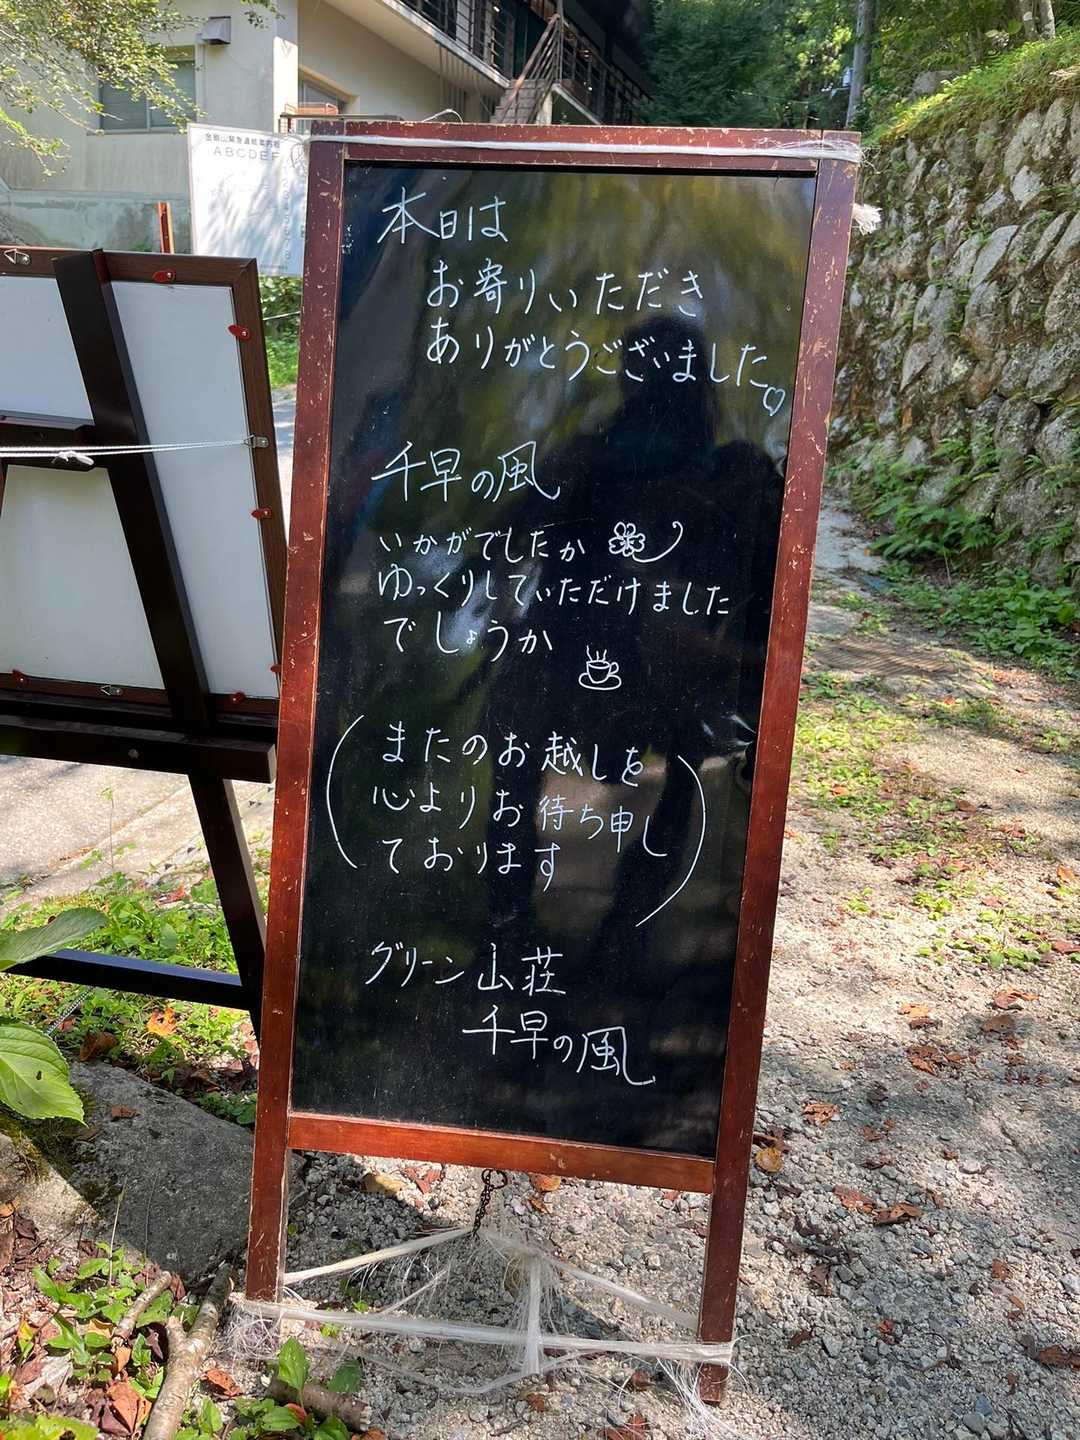 ABCDEF
本日は
お寄りいただき
ありがとうございました。♡
千早の風
いかがでしたか
ゆっくりしていただけました
でしょうか
(またのお越しを
心よりお待ち申し
ております)
グリーン山荘
千早の風